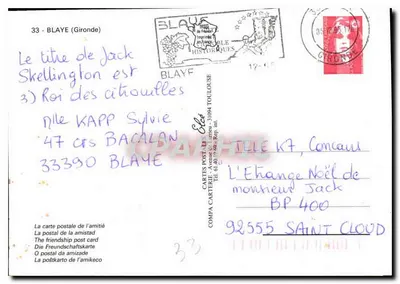 33 - BLAYE (Gironde)
Le titre de Jack
Skellington est
3) Roi des citrouilles
Mlle KAPP Sylvie
47 crs BACALAN
33390 BLAYE
La carte postale de l'amitié
La postal de la amistad
The friendship post card
Die Freundschaftskarte
O postal da amizade
La poŝtkarto de l'amikeco
CARTES POSTALES
Elce
COMPA CARTERIE
31094 TOULOUSE
BLAYE
HISTORIQUES
BLAYE
GIRONDE
MLLE K7, Concours
L'Etrange Noël de
monsieur Jack
BP 400
92555 SAINT CLOUD
33